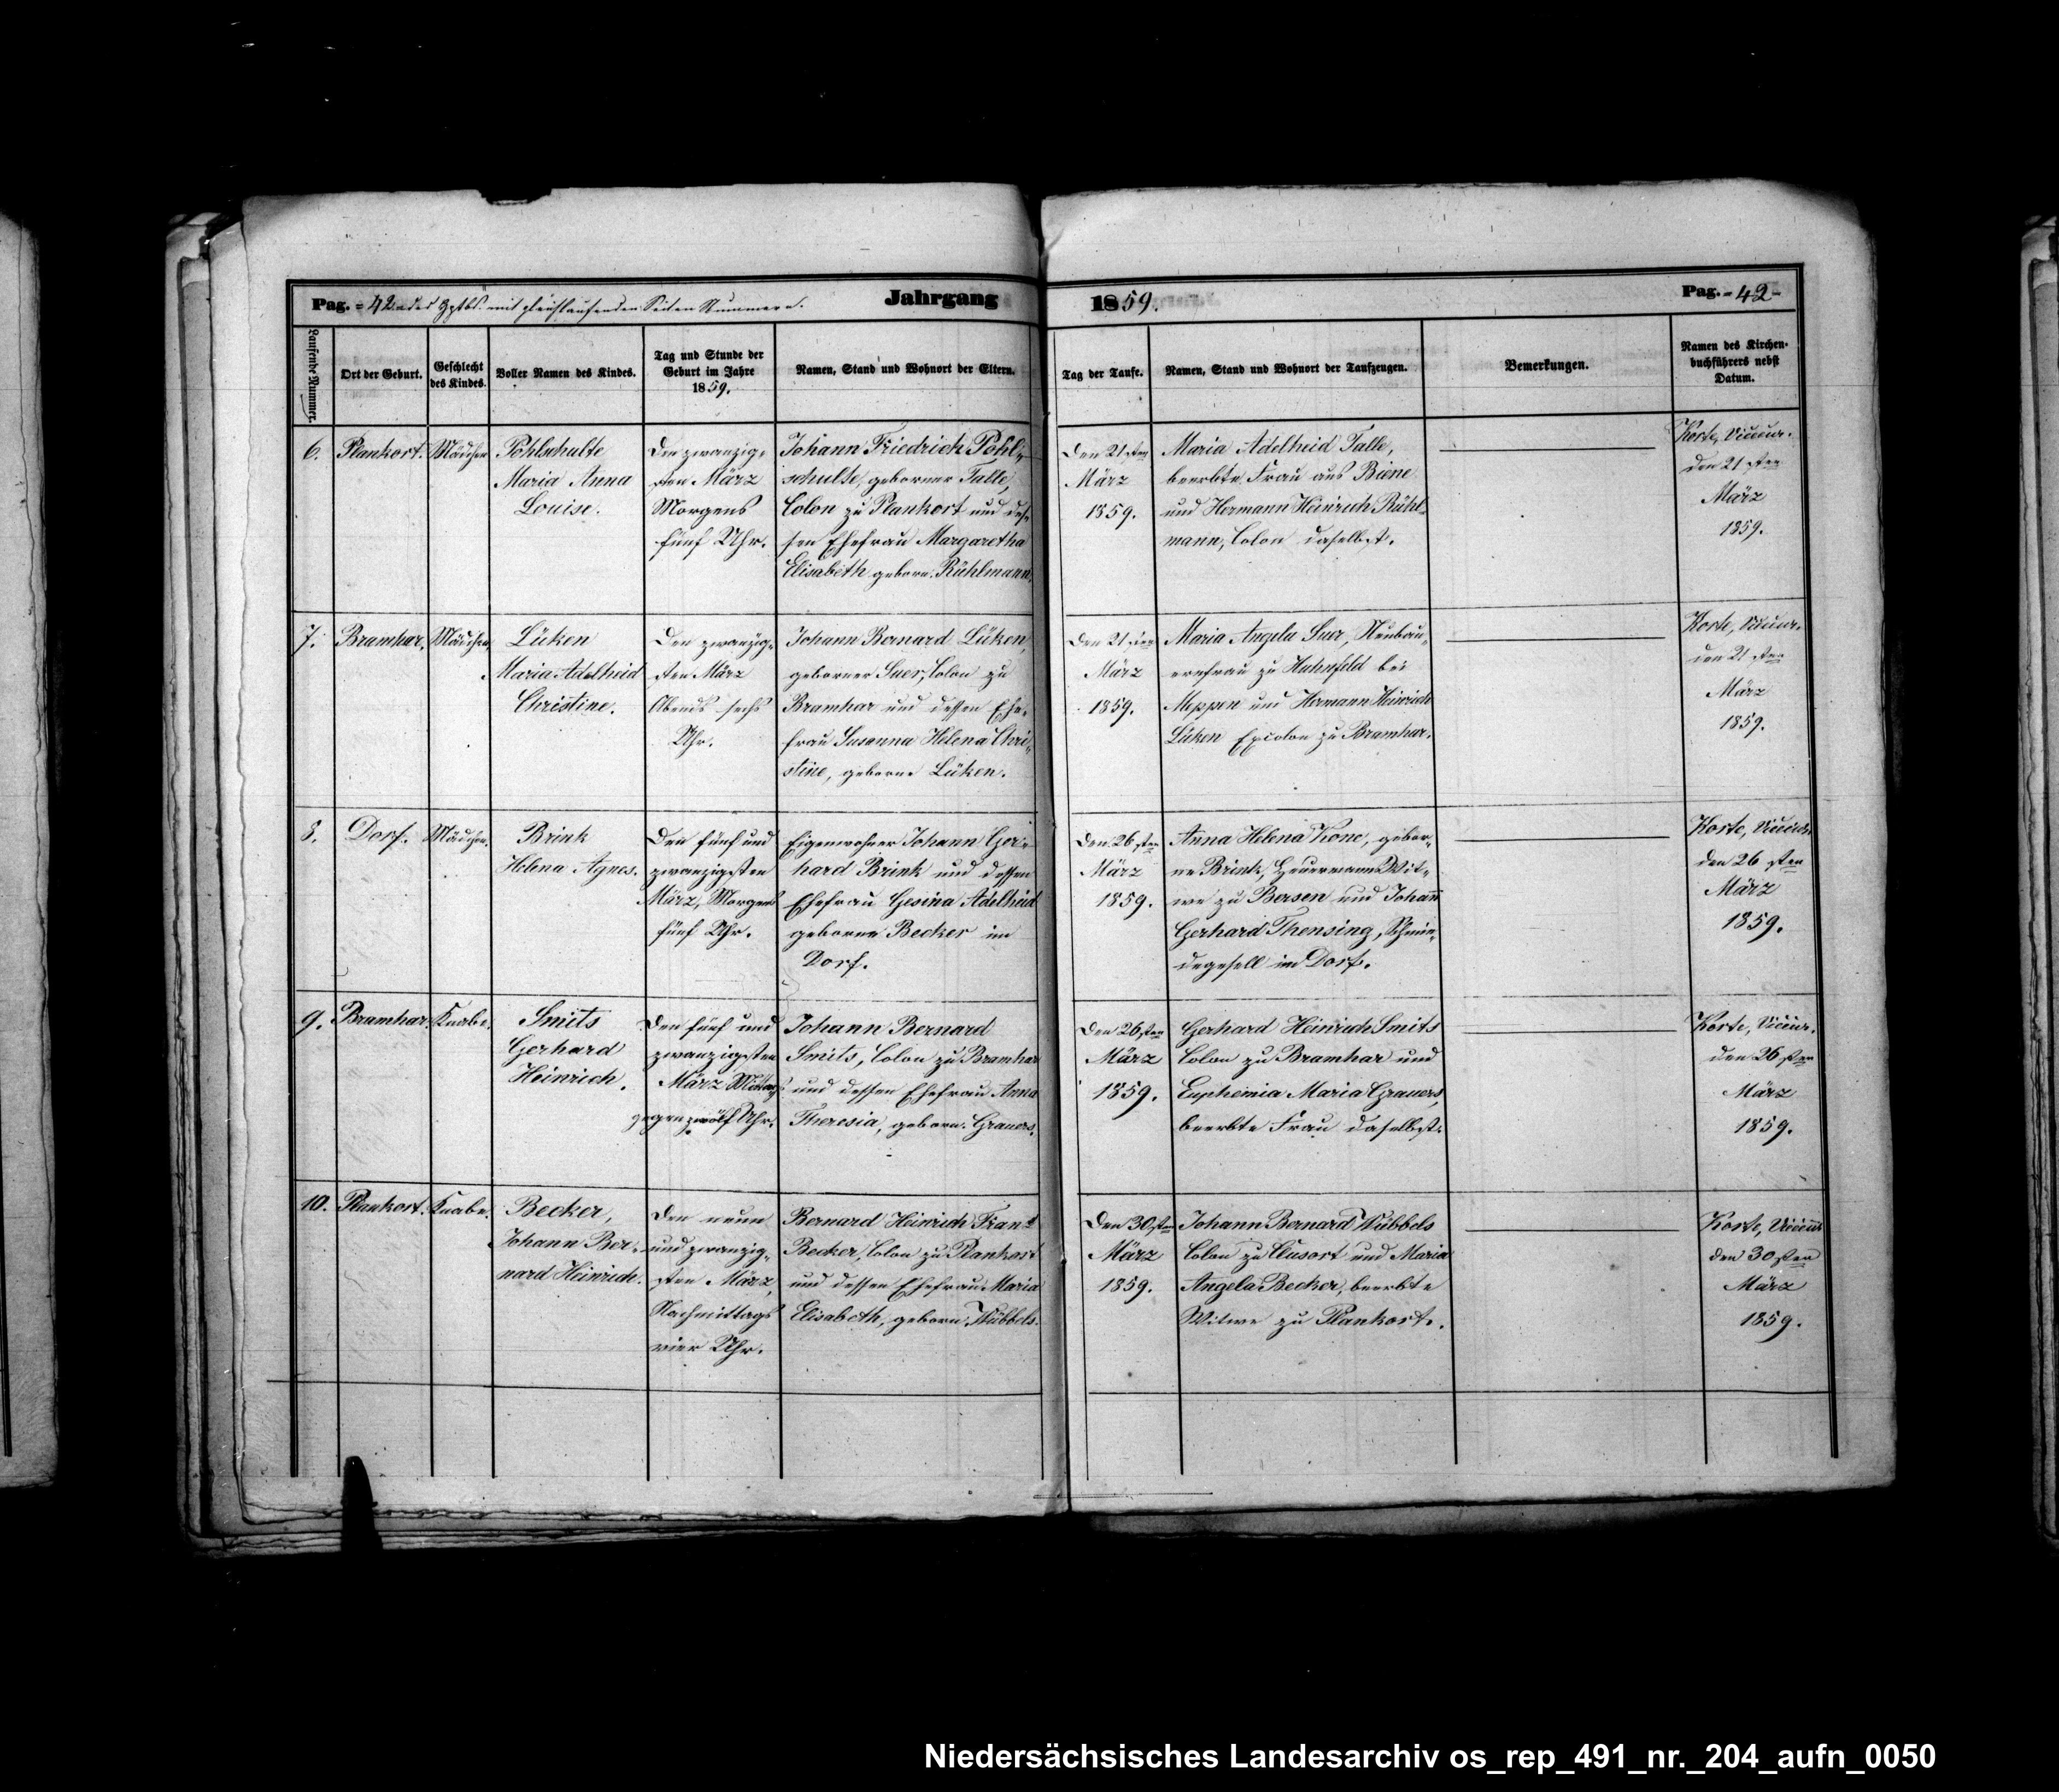 Pag. = 42 = des Hptbs. mit gleichlaufenden Seiten Nummern. Jahrgang 1859. Pag. = 42 =
Laufende Nummer.
Ort der Geburt.
Geschlecht des Kindes.
Voller Namen des Kindes.
Tag und Stunde der Geburt im Jahre 1859.
Namen, Stand und Wohnort der Eltern.
Tag der Taufe.
Namen, Stand und Wohnort der Taufzeugen.
Bemerkungen.
Namen des Kirchen-
buchführers nebst
Datum.
6. Plankort. Mädchen
Pohlschulte
Maria Anna
Louise.
Den zwanzig-
sten März
Morgens
fünf Uhr.
Johann Friedrich Pohl-
schulte, geborner Talle,
Colon zu Plankort und des-
sen Ehefrau Margaretha
Elisabeth geborn. Rühlmann.
Den 21sten
März
1859.
Maria Adelheid Talle,
beerbte Frau aus Biene
und Hermann Heinrich Rühl-
mann, Colon daselbst.
Korte, Vicecur.
den 21 sten
März
1859.
7. Bramhar. Mädchen
Lüken
Maria Adelheid
Christine.
Den zwanzig-
sten März
Abends sechs
Uhr.
Johann Bernard Lüken,
geborner Suer, Colon zu
Bramhar und dessen Ehe-
frau Susanna Helena Chri-
stine, geborne Lüken.
Den 21 sten
März
1859.
Maria Angela Suer, Neubau-
ernfrau zu Huhnfeld bei
Meppen und Hermann Heinrich
Lüken Excolon zu Bramhar.
Korte, Vicecur.
den 21 sten
März
1859.
8. Dorf. Mädchen.
Brink
Helena Agnes.
Den fünf und
zwanzigsten
März, Morgens
fünf Uhr.
Eigenwohner Johann Ger-
hard Brink und dessen
Ehefrau Gesina Adelheid
geborne Becker im
Dorf.
Den 26 sten
März
1859.
Anna Helena Kone, gebor-
ne Brink, Heuermanns Wit-
we zu Bersen und Johann
Gerhard Thensing, Schmie-
degesell im Dorf.
Korte, Vicecur.
den 26 sten
März
1859.
9. Bramhar. Knabe.
Smits
Gerhard
Heinrich.
Den fünf und
zwanzigsten
März Mittags
gegen zwölf Uhr.
Johann Bernard
Smits, Colon zu Bramhar
und dessen Ehefrau Anna
Theresia, geborn. Grauers.
Den 26 sten
März
1859.
Gerhard Heinrich Smits
Colon zu Bramhar und
Euphemia Maria Grauers,
beerbte Frau daselbst.
Korte, Vicecur.
den 26 sten
März
1859.
10. Plankort. Knabe.
Becker,
Johann Ber-
nard Heinrich.
Den neun
und zwanzig-
sten März,
Nachmittags
vier Uhr.
Bernard Heinrich Franz
Becker, Colon zu Plankort
und dessen Ehefrau Maria
Elisabeth, geborn. Wübbels.
Den 30 sten
März
1859.
Johann Bernard Wübbels
Colon zu Clusort und Maria
Angela Becker, beerbte
Witwe zu Plankort.
Korte, Vicecur
den 30 sten
März
1859.
Niedersächsisches Landesarchiv os_rep_491_nr._204_aufn_0050